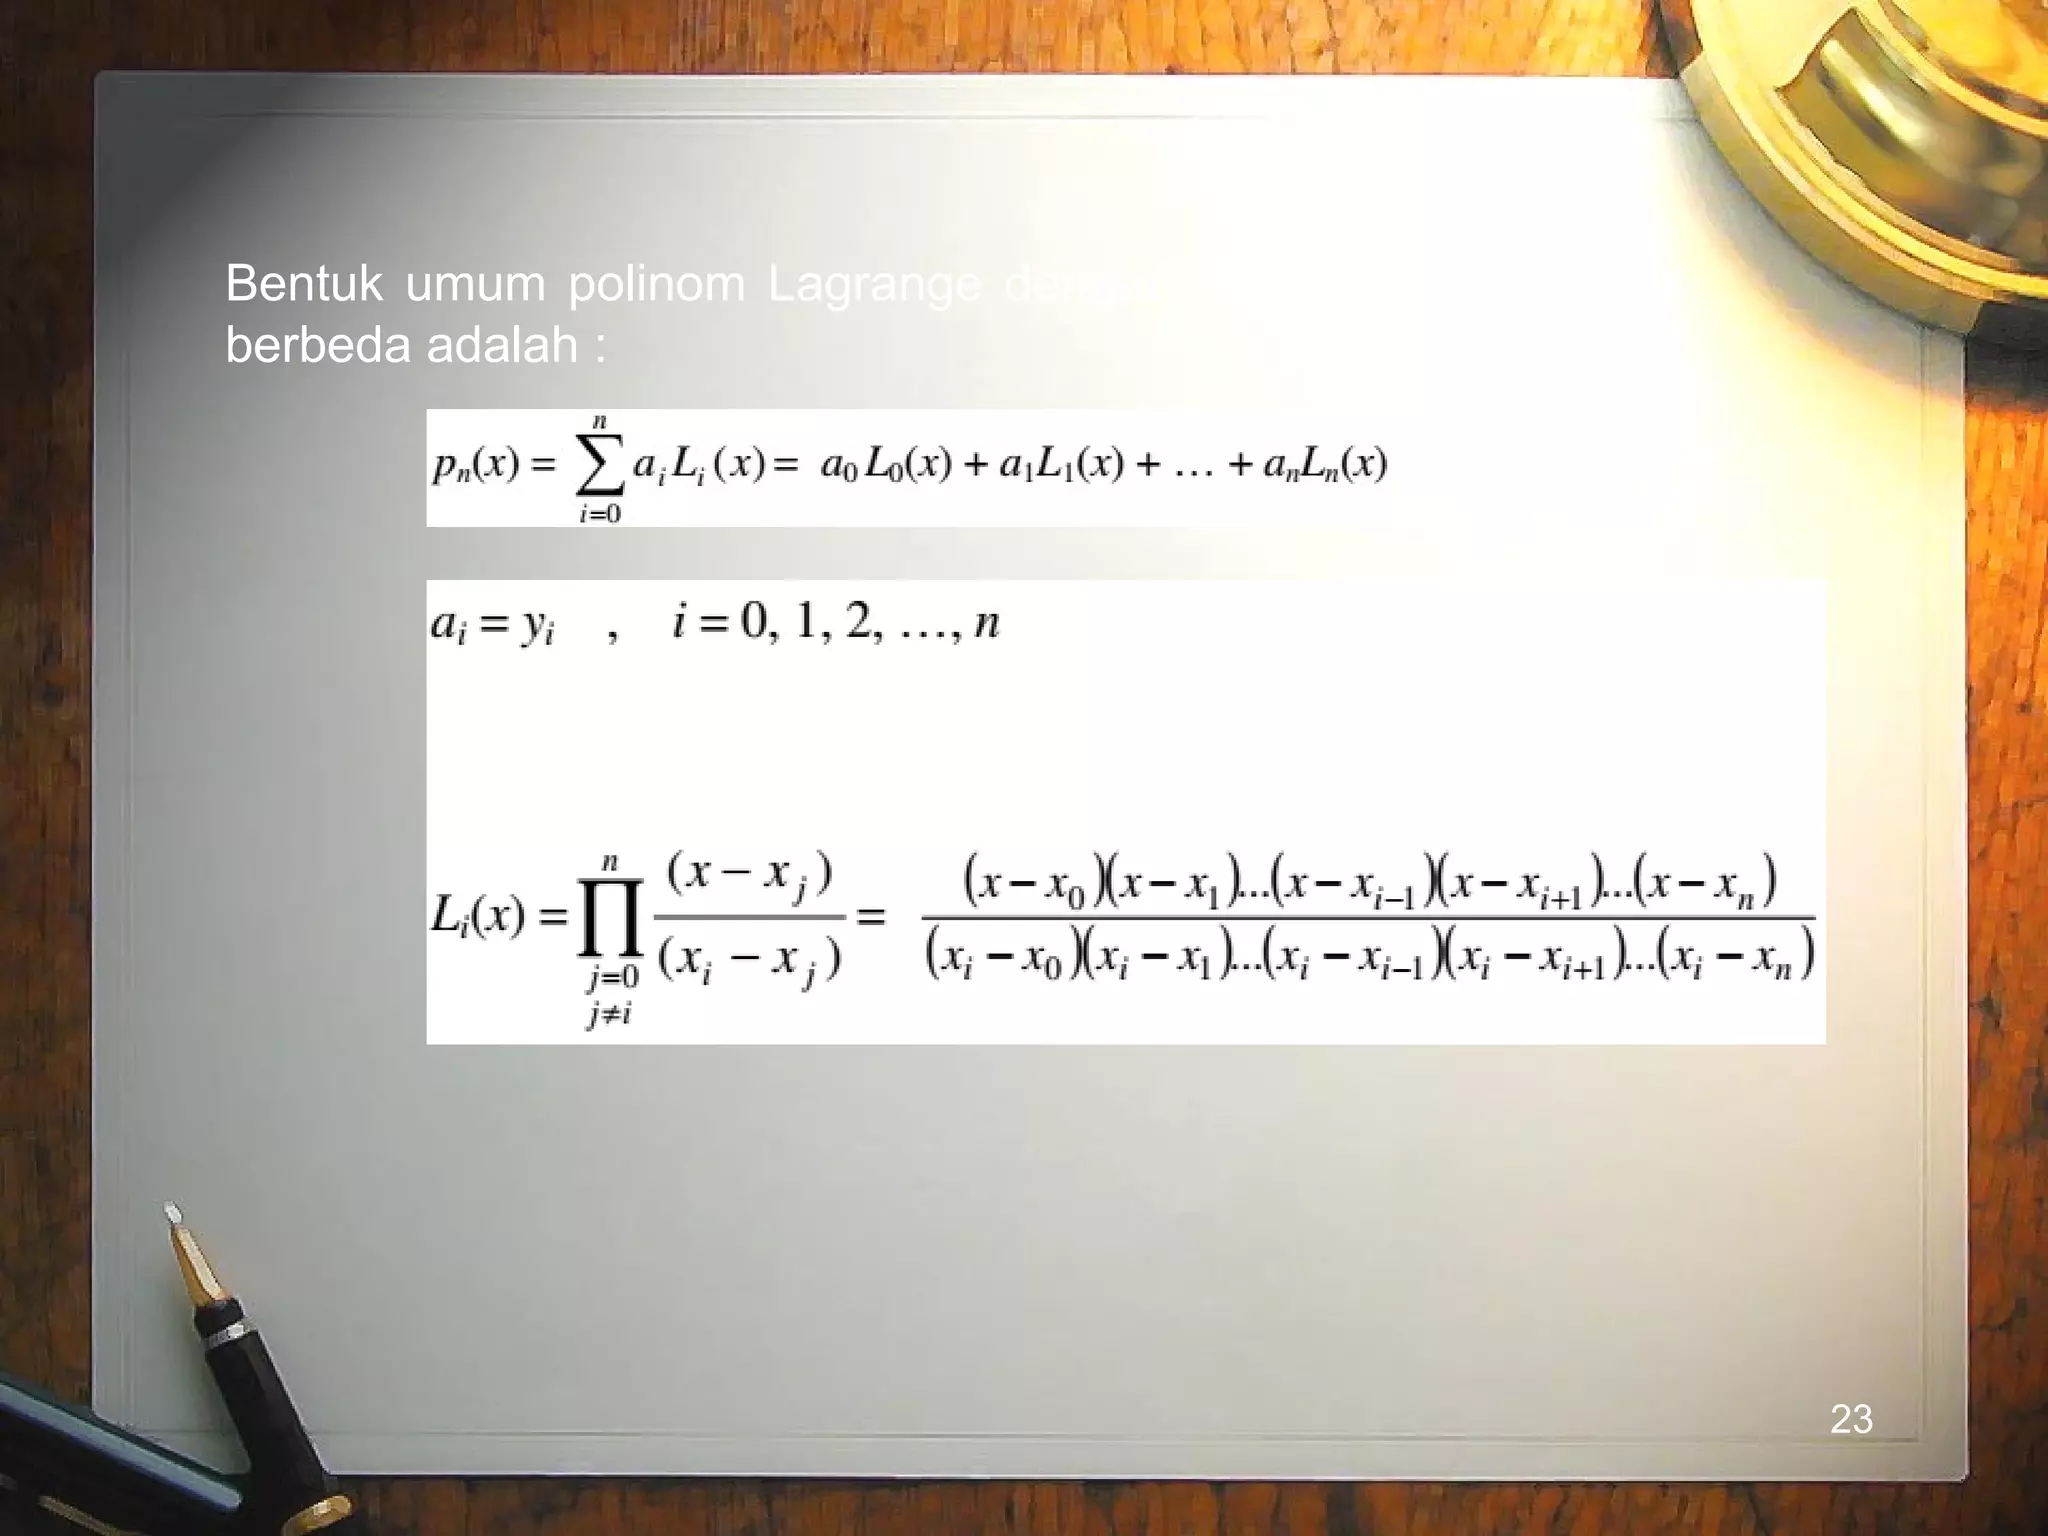 Bentuk umum polinom Lagrange
berbeda adalah :
pₙ(x) = ∑ⁿᵢ₌₀ aᵢ Lᵢ (x) = a₀ L₀(x) + a₁L₁(x) + … + aₙLₙ(x)
aᵢ = yᵢ , i = 0, 1, 2, …, n
Lᵢ(x) = ∏ⁿ_{j=0, j≠i} (x − xⱼ) / (xᵢ − xⱼ) = (x − x₀)(x − x₁)...(x − xᵢ₋₁)(x − xᵢ₊₁)...(x − xₙ) / (xᵢ − x₀)(xᵢ − x₁)...(xᵢ − xᵢ₋₁)(xᵢ − xᵢ₊₁)...(xᵢ − xₙ)
23